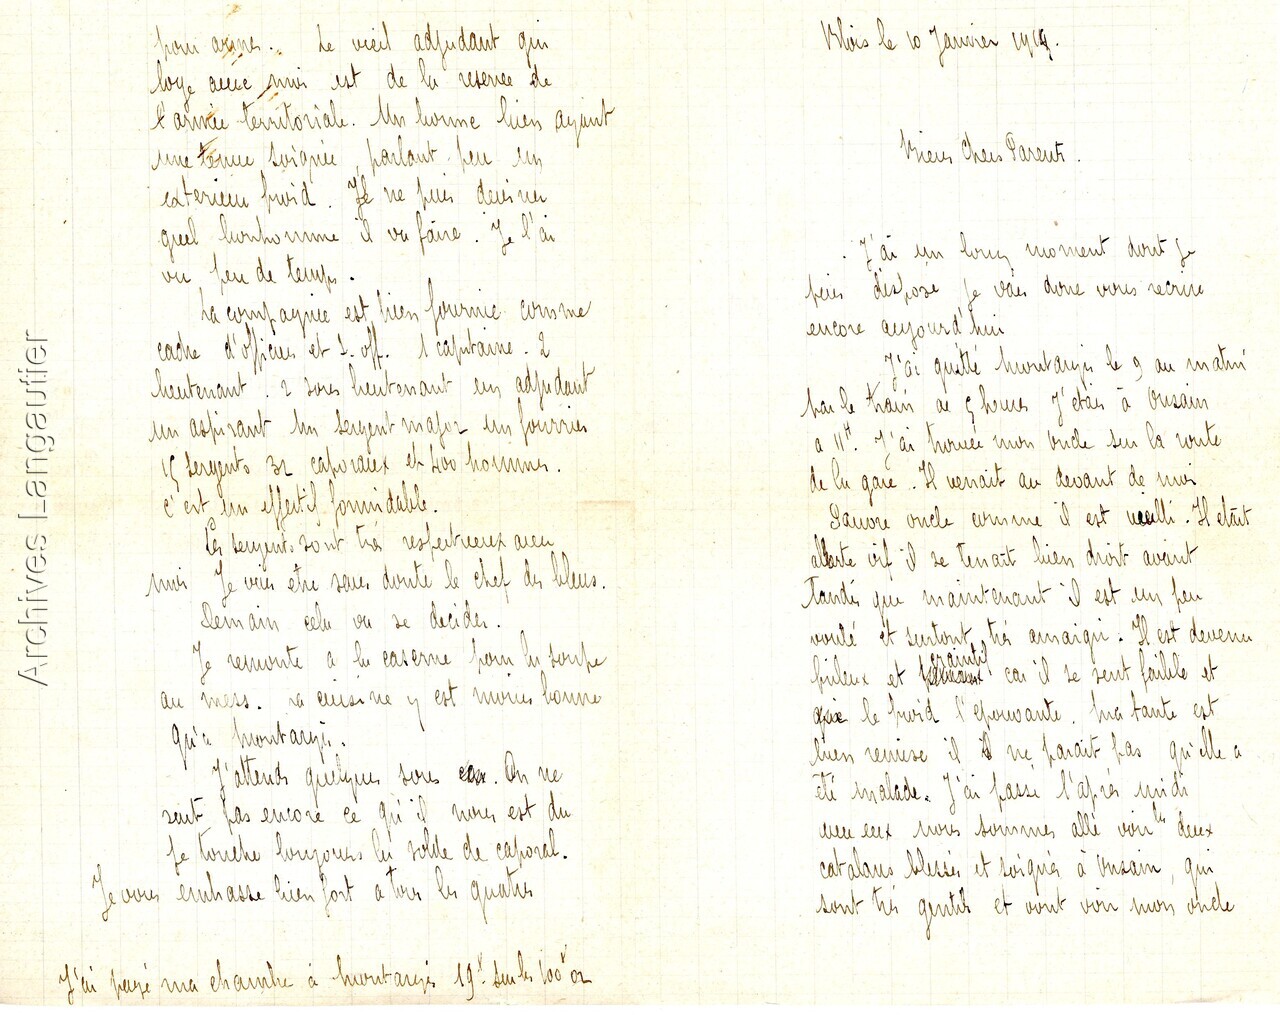 Blois le 10 Janvier 1914.
Bien Chers Parents.
J'ai un long moment dont je
puis disposé je vais donc vous recrire
encore aujourd'hui
J'ai quitté Montargis le 9 au matin
par le train de 5 heures J'etais à Onzain
a 11H. J'ai trouvé mon oncle sur la route
de la gare. Il venait au devant de moi
Pauvre oncle comme il est vieilli. Il était
alerte vif il se tenait bien droit avant
Tandis que maintenant il est un peu
vouté et surtout très amaigri. Il est devenu
frileux et craintif car il se sent faible et
que le froid l'epouvante. Ma tante est
bien remise il ne parait pas qu'elle a
été malade. J'ai passé l'après midi
avec eux nous sommes allé voir les deux
catalans blessés et soignés à Onzain, qui
sont très gentils et vont voir mon oncle
pour armes. Le vieil adjudant qui
loge avec moi est de la reserve de
l'armée territoriale. Un homme bien ayant
une tenue soignée, parlant peu un
exterieur froid. Je ne puis deviner
quel bonhomme il va faire. Je l'ai
vu peu de temps.
La compagnie est bien fournie comme
cadre d'officiers et S. off. 1 capitaine. 2
lieutenant. 2 sous lieutenant un adjudant
un aspirant Un sergent major un fourrier
15 sergents 32 caporaux et 400 hommes.
C'est un effectif formidable.
Les sergents sont très respectueux avec
moi Je vais etre sans doute le chef des bleus.
Demain cela va se decider.
Je remonte a la caserne pour la soupe
au mess. La cuisine y est moins bonne
qu'a Montargis.
J'attends quelques sous. On ne
sait pas encore ce qu'il nous est du
je touche toujours la solde de caporal.
Je vous embrasse bien fort a tous les quatres
J'ai payé ma chambre à Montargis 19f sur les 100f or
Archives Langautier